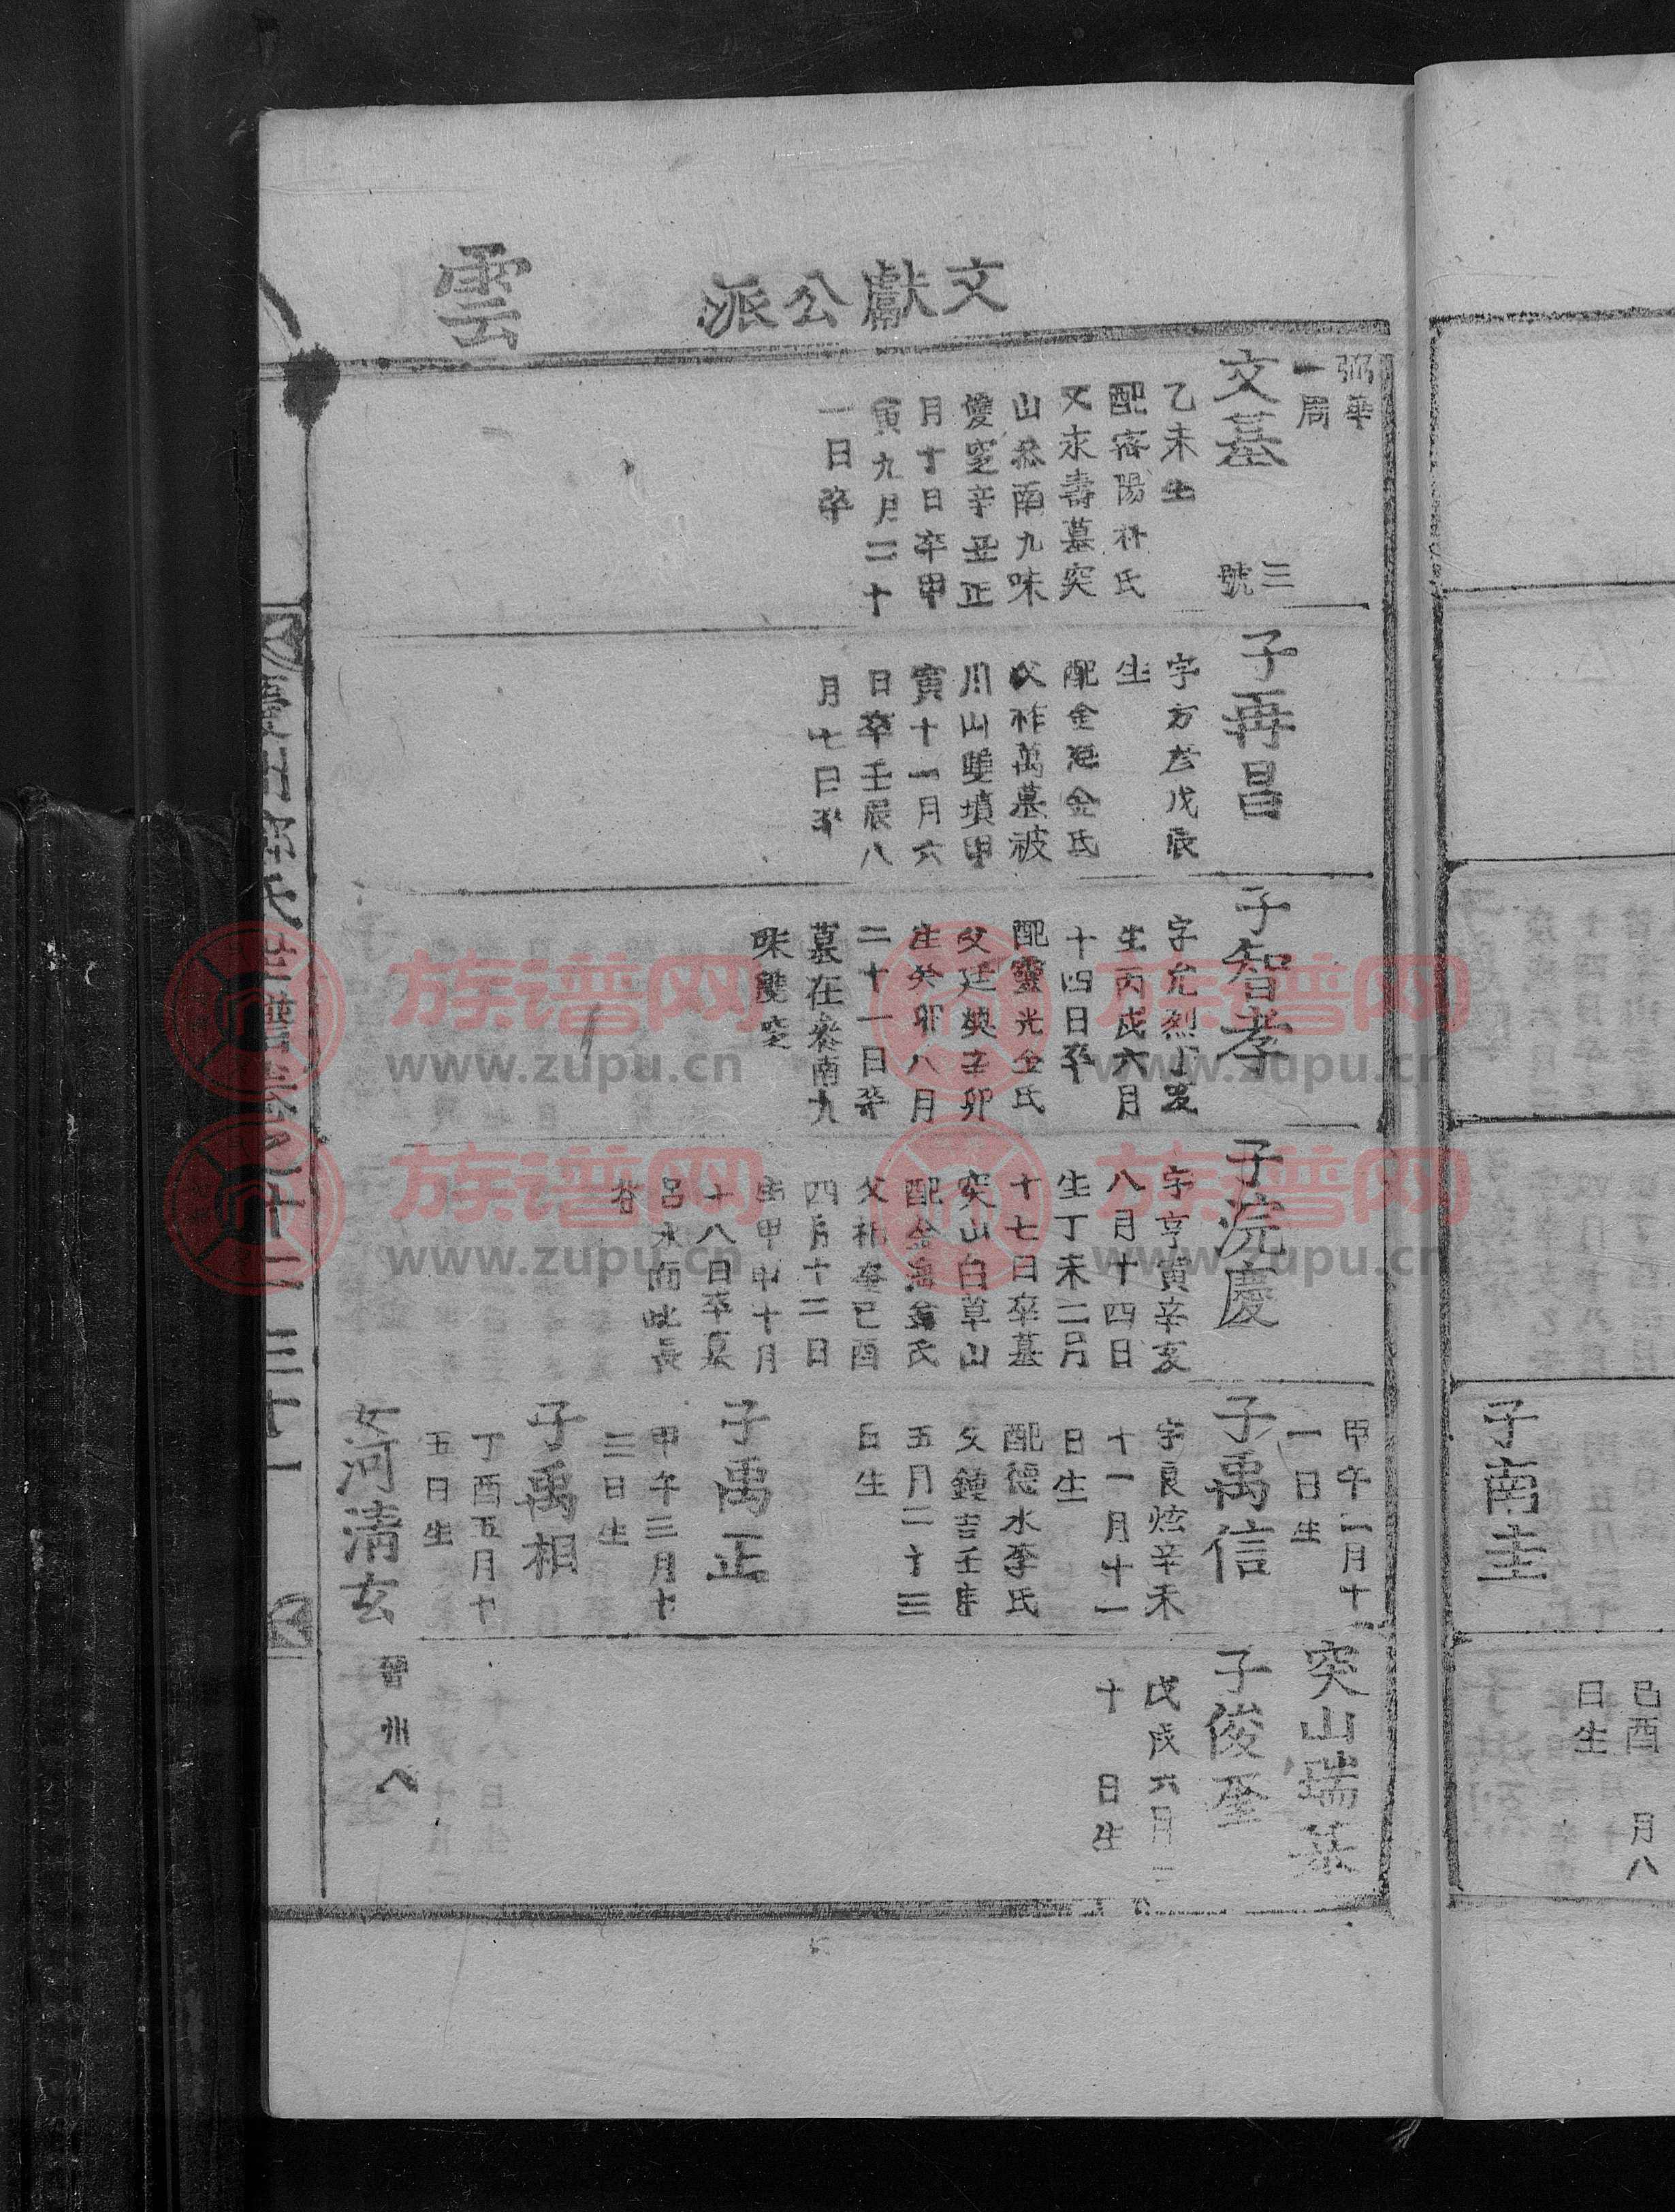 文獻公派
雲
弼華
一周
文基
三
號
乙未生
配密陽朴氏
父永壽墓突
山恭南九味
雙窆辛丑正
月十日卒甲
寅九月二十
一日卒
子再昌
字方彥戊辰
生
配金海金氏
父祚萬墓被
川山雙墳甲
寅十一月六
日卒壬辰八
月七日卒
子智孝
字允烈丁亥
生丙戌六月
十四日卒
配靈光金氏
父廷煥辛卯
生癸卯八月
二十一日卒
墓在泰南九
味雙窆
子浣慶
字亨寅辛亥
八月十四日
生丁未二月
十七日卒墓
突山白草山
配金海金氏
父和奎己酉
四月十二日
生甲申十月
十八日卒墓
谷
甲午一月十
一日生
子禹信
字良炫辛未
十一月十一
日生
配德水李氏
父鍾吉壬申
五月二十三
日生
子禹正
甲午三月十
三日生
子禹相
丁酉五月十
五日生
女河清玄
晉州人
突山瑞基
子俊奎
戊戌六月二
十 日生
十二 三十一
子南圭
己酉 月八
日生
族谱网
www.zupu.cn
族谱网
www.zupu.cn
族谱网
www.zupu.cn
族谱网
www.zupu.cn